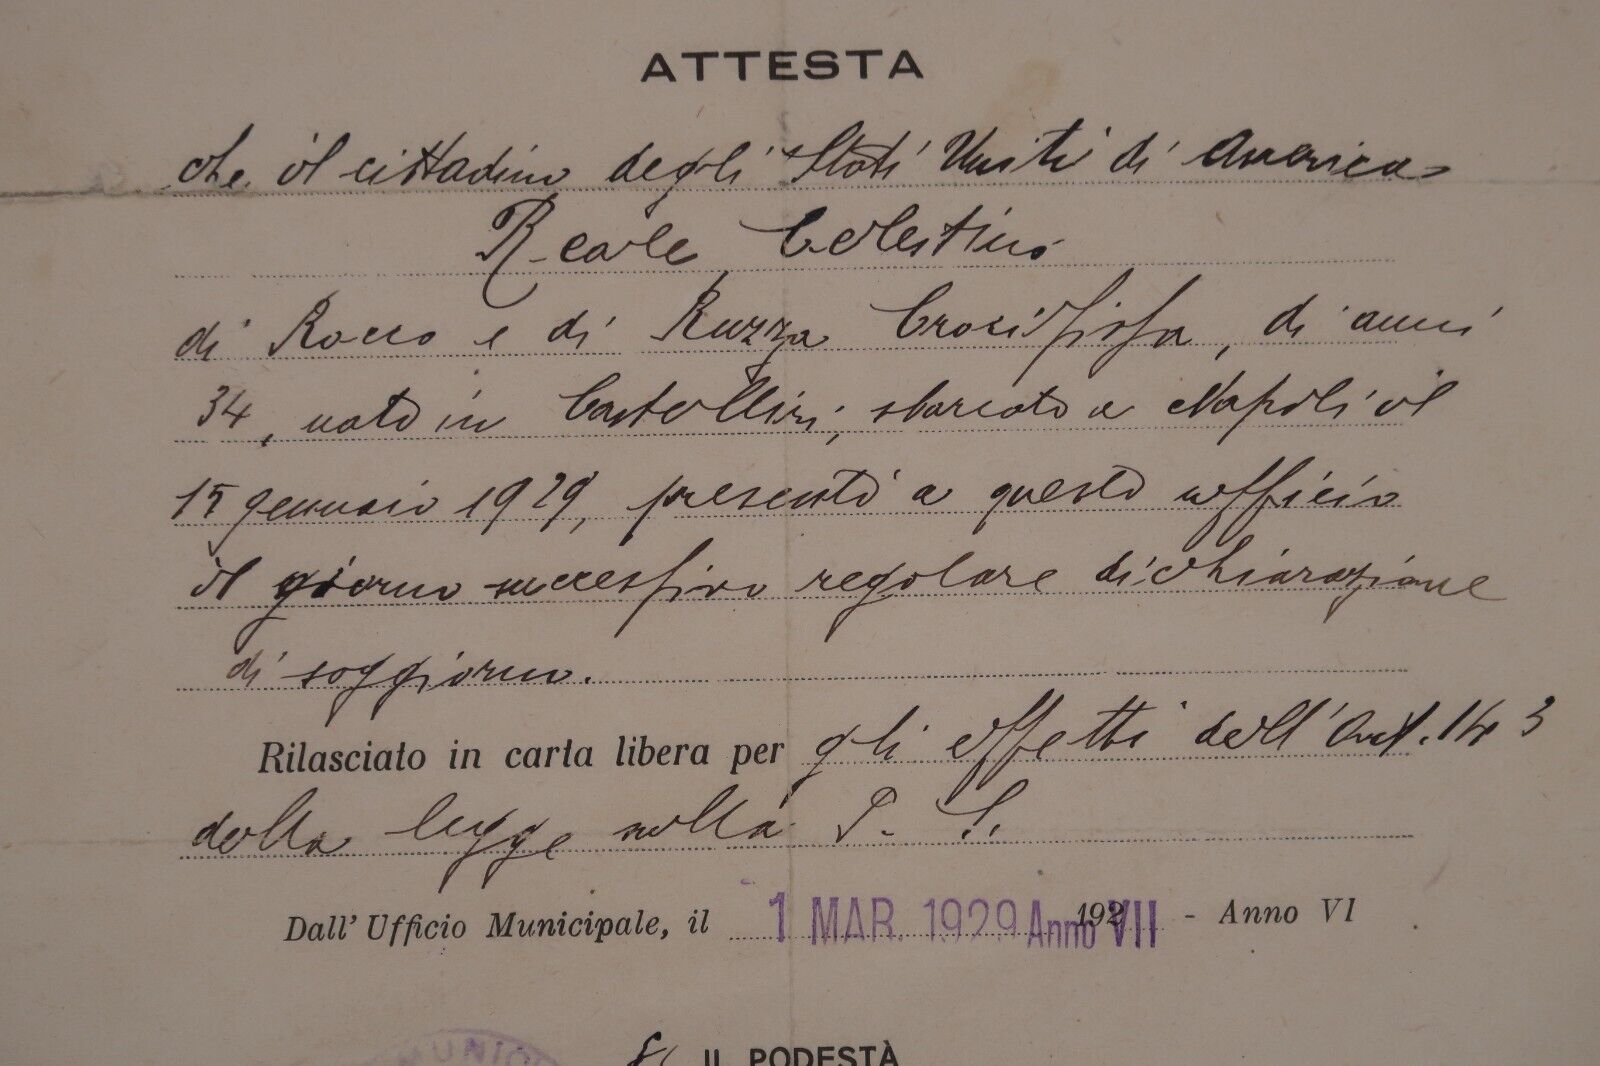 ATTESTA
che il cittadino degli Stati Uniti di America
Reale Celestino
di Rocco e di Ruzza Crocifissa, di anni
34, nato in Castellini, sbarcato a Napoli il
15 gennaio 1929, presentò a questo ufficio
il giorno successivo regolare dichiarazione
di soggiorno.
Rilasciato in carta libera per gli effetti dell'Art. 143
della legge sulla P. S.
Dall' Ufficio Municipale, il 1 MAR. 1929 Anno VII 192 - Anno VI
MUNICI
IL PODESTÀ